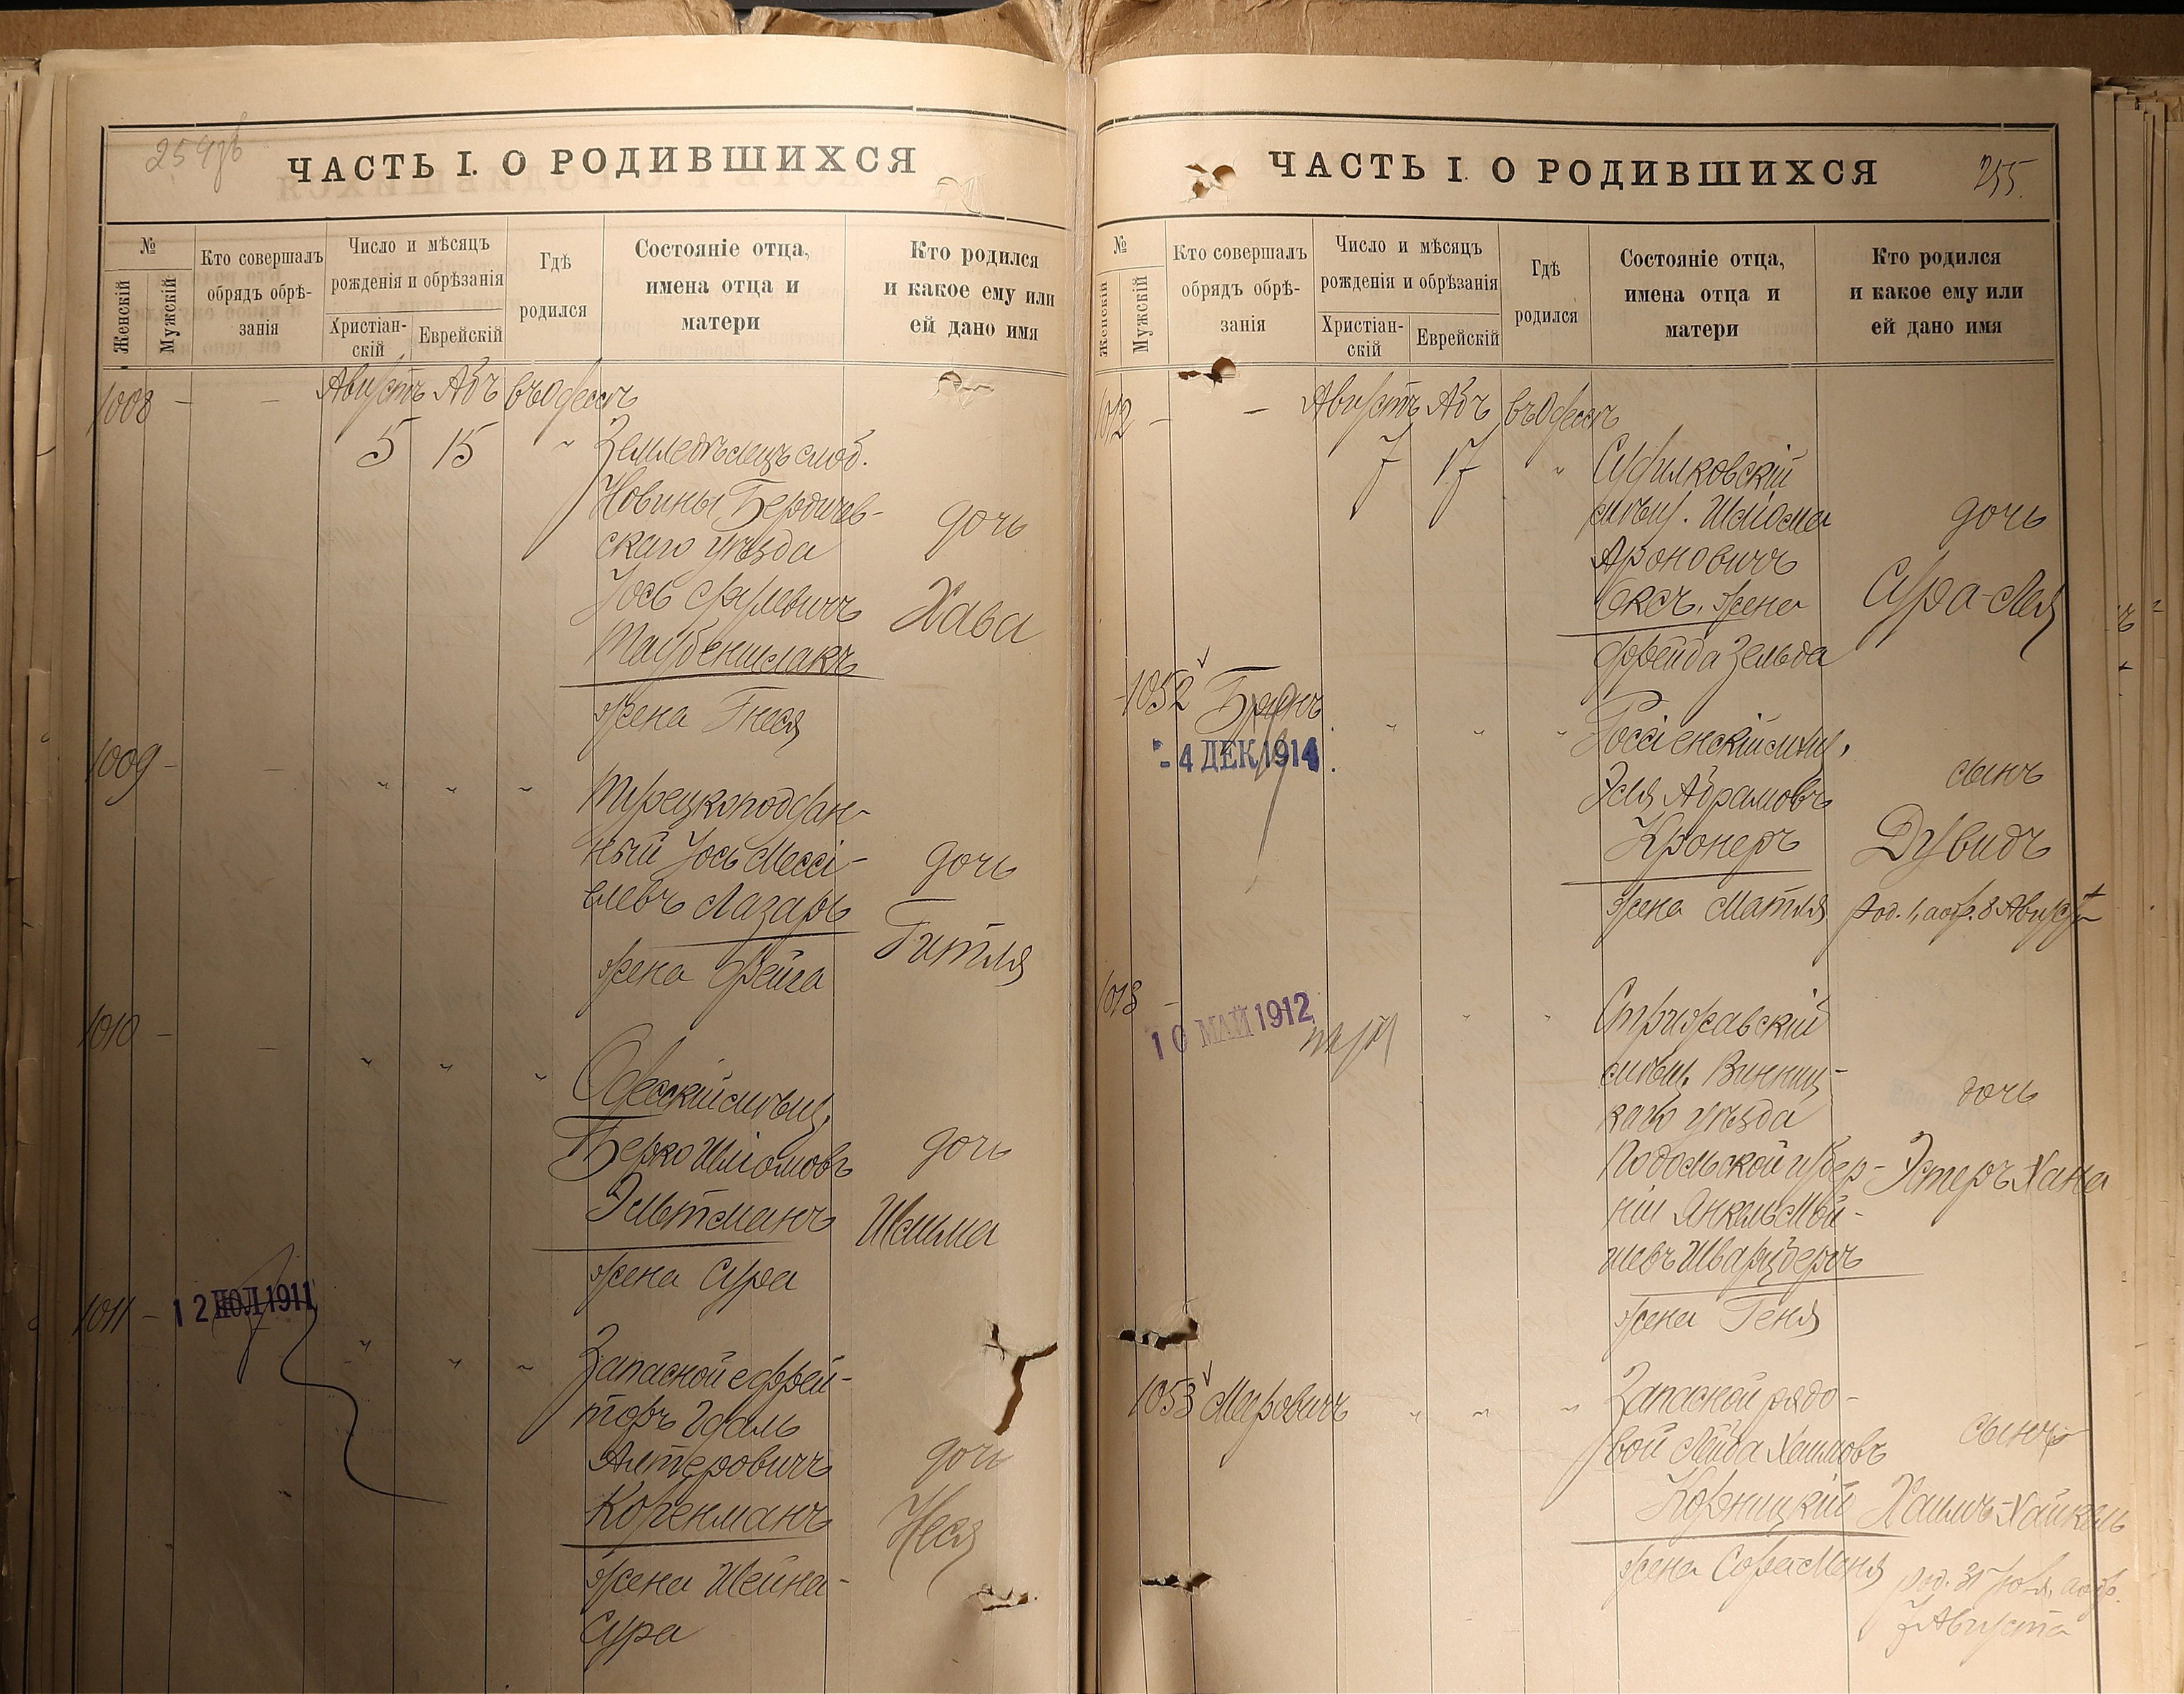 254об
ЧАСТЬ I. О РОДИВШИХСЯ
№
Женскій
Мужскій
Кто совершалъ
обрядъ обрѣ-
занія
Число и мѣсяцъ
рожденія и обрѣзанія
Христіан-
скій
Еврейскій
Гдѣ
родился
Состояніе отца,
имена отца и
матери
Кто родился
и какое ему или
ей дано имя
1008 - - Августъ Абъ въ Одессѣ
5 15 " Земледѣлецъ
Новины Бердичев-
скаго уѣзда
дочь
Іось
Таубеншлакъ
Хава
жена Гнеся
1009 - - " " "
Турецкоподдан-
ный Іось Мессі-
левъ Лазарь
дочь
Гитля
жена Фейга
1010 - - " " "
Одесскій мѣщ.
Берко Шліомовъ
Эльтманъ
дочь
Шлима
жена Сура
1011 - 12 ІЮЛ 1911
" " "
Запасной ефрей-
торъ Удаль
Алтеровичъ
Коренманъ
дочь
Неся
жена Шейна-
Сура
ЧАСТЬ I. О РОДИВШИХСЯ
255.
№
Женскій
Мужскій
Кто совершалъ
обрядъ обрѣ-
занія
Число и мѣсяцъ
рожденія и обрѣзанія
Христіан-
скій
Еврейскій
Гдѣ
родился
Состояніе отца,
имена отца и
матери
Кто родился
и какое ему или
ей дано имя
1012 - - Августъ Абъ въ Одессѣ
7 17 " Судилковскій
мѣщ. Шліома
Ароновичъ
жена
Фрейда Зельда
дочь
Сура-Лея
1052
- 4 ДЕК 1914.
" " "
Россіенскій мѣщ.
Эля Абрамовъ
Кронеръ
жена Матля
сынъ
Дувидъ
род. 1, а обр. 8 Августа
1013 -
10 МАЙ 1912
" "
Стрижавскій
мѣщ. Винниц-
каго уѣзда
Подольской губер-
ніи Янкель Мой-
шевъ Шварцбергъ
жена Геня
дочь
Эстеръ Хана
1053 Меровичъ " " "
Запасной рядо-
вой Лейба Хаимовъ
Корницкій
жена Сора Меня
сынъ
Хаимъ-Хайкель
род. 31 Іюля, а обр.
7 Августа